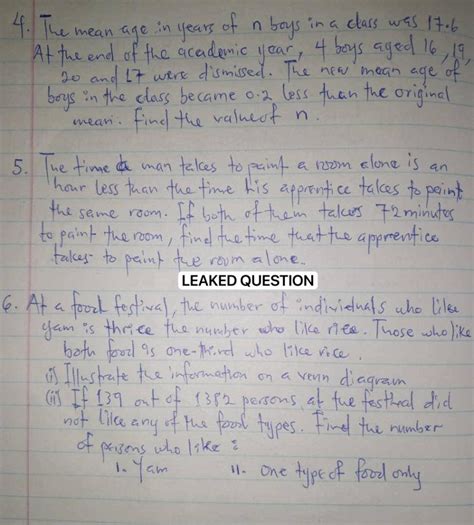 4. The mean age in years of n boys in a class was 17.6
At the end of the academic year, 4 boys aged 16, 19,
20 and 17 were dismissed. The new mean age of
boys in the class became 0.2 less than the original
mean. find the value of n.
5. The time a man takes to paint a room alone is an
hour less than the time his apprentice takes to paint
the same room. If both of them takes 72 minutes
to paint the room, find the time that the apprentice
takes to paint the room alone.
LEAKED QUESTION
6. At a food festival, the number of individuals who like
yam is thrice the number who like rice. Those who like
both food is one-third who like rice.
(i) Illustrate the information on a venn diagram
(ii) If 139 out of 1382 persons at the festival did
not like any of the food types. Find the number
of persons who like :
I. Yam II. One type of food only